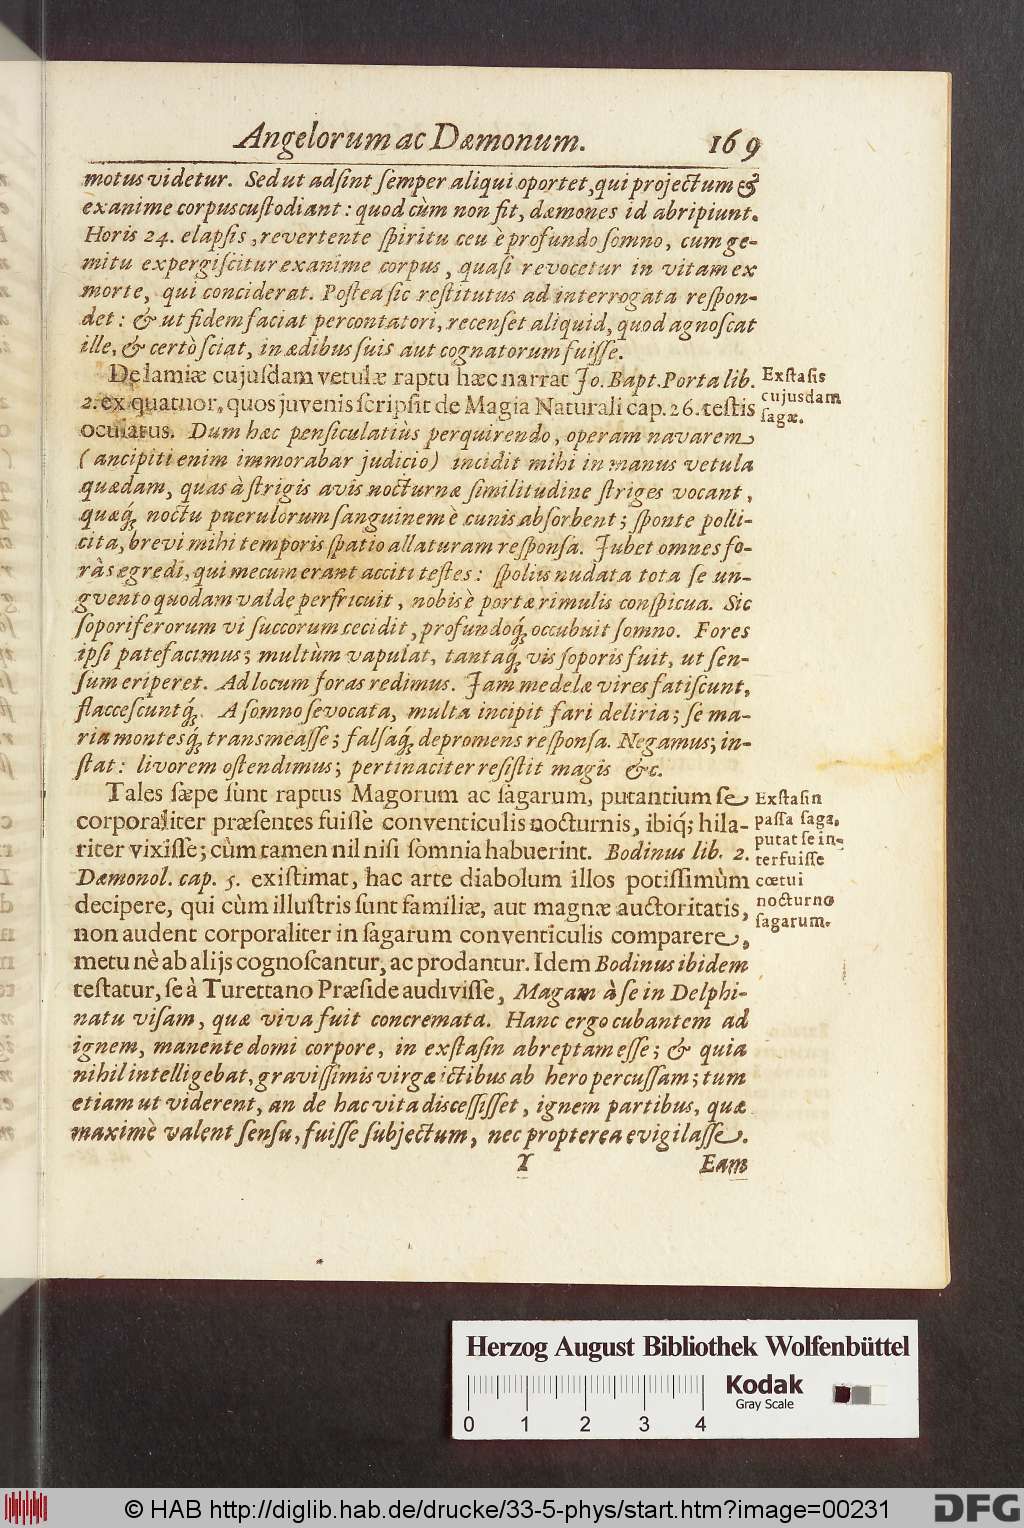 Angelorum ac Dæmonum. 169
motus videtur. Sed ut adſint ſemper aliqui oportet, qui projectum &
exanime corpus cuſtodiant: quod cùm non fit, dæmones id abripiunt.
Horis 24. elapſis, revertente ſpiritu ceu è profundo ſomno, cum ge-
mitu expergiſcitur exanime corpus, quaſi revocetur in vitam ex
morte, qui conciderat. Poſtea ſic reſtitutus ad interrogata reſpon-
det: & ut fidem faciat percontatori, recenſet aliquid, quod agnoſcat
ille, & certò ſciat, in ædibus ſuis aut cognatorum fuiſſe.
De lamiæ cujuſdam vetulæ raptu hæc narrat Jo. Bapt. Porta lib.
2. ex quatuor, quos juvenis ſcripſit de Magia Naturali cap. 26. teſtis
oculatus. Dum hæc penſiculatiùs perquirendo, operam navarem
(ancipiti enim immorabar judicio) incidit mihi in manus vetula
quædam, quas à ſtrigis avis nocturnæ ſimilitudine ſtriges vocant,
quæq́; noctu puerulorum ſanguinem è cunis abſorbent; ſponte polli-
cita, brevi mihi temporis ſpatio allaturam reſponſa. Jubet omnes fo-
ràs egredi, qui mecum erant acciti teſtes: ſpoliis nudata tota ſe un-
gvento quodam valde perfricuit, nobis è portæ rimulis conſpicua. Sic
ſoporiferorum vi ſuccorum cecidit, profundoq́; occubuit ſomno. Fores
ipſi patefacimus; multùm vapulat, tantaq́; vis ſoporis fuit, ut ſen-
ſum eriperet. Ad locum foras redimus. Jam medelæ vires fatiſcunt,
flacceſcuntq́;. A ſomno ſevocata, multa incipit fari deliria; ſe ma-
ria montesq́; transmeaſſe; falſaq́; depromens reſponſa. Negamus; in-
ſtat: livorem oſtendimus; pertinaciter reſiſtit magis &c.
Tales ſæpe ſunt raptus Magorum ac ſagarum, putantium ſe
corporaliter præſentes fuiſſe conventiculis nocturnis, ibiq́; hila-
riter vixiſſe; cùm tamen nil niſi ſomnia habuerint. Bodinus lib. 2.
Dæmonol. cap. 5. exiſtimat, hac arte diabolum illos potiſſimùm
decipere, qui cùm illuſtris ſunt familiæ, aut magnæ auctoritatis,
non audent corporaliter in ſagarum conventiculis comparere,
metu nè ab alijs cognoſcantur, ac prodantur. Idem Bodinus ibidem
teſtatur, ſe à Turettano Præſide audiviſſe, Magam à ſe in Delphi-
natu viſam, quæ viva fuit concremata. Hanc ergo cubantem ad
ignem, manente domi corpore, in exſtaſin abreptam eſſe; & quia
nihil intelligebat, graviſſimis virgæ ictibus ab hero percuſſam; tum
etiam ut viderent, an de hac vita disceſſiſſet, ignem partibus, quæ
maximè valent ſenſu, fuiſſe ſubjectum, nec propterea evigilaſſe.
Y Eam
Exſtaſis
cujusdam
ſagæ.
Exſtaſin
paſſa ſaga,
putat ſe in-
terfuiſſe
cœtui
nocturno
ſagarum.
Herzog August Bibliothek Wolfenbüttel
Kodak
Gray Scale
0 1 2 3 4
© HAB http://diglib.hab.de/drucke/33-5-phys/start.htm?image=00231
DFG